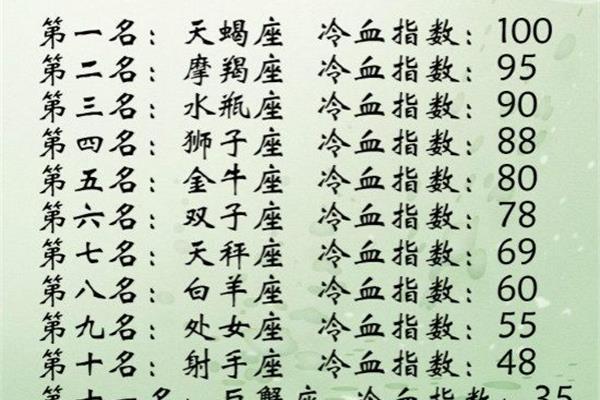 第一名：天蝎座 冷血指数：100
第二名：摩羯座 冷血指数：95
第三名：水瓶座 冷血指数：90
第四名：狮子座 冷血指数：88
第五名：金牛座 冷血指数：80
第六名：双子座 冷血指数：78
第七名：天秤座 冷血指数：69
第八名：白羊座 冷血指数：60
第九名：处女座 冷血指数：55
第十名：射手座 冷血指数：48
第十一名：巨蟹座 冷血指数：35